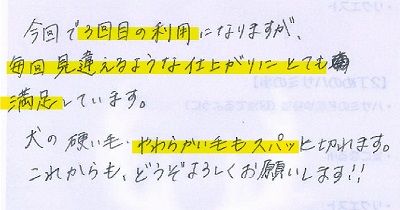 今回で3回目の利用になりますが、
毎回見違えるような仕上がりにとても
満足しています。
犬の硬い毛、やわらかい毛もスパッと切れます。
これからも、どうぞよろしくお願いします!!